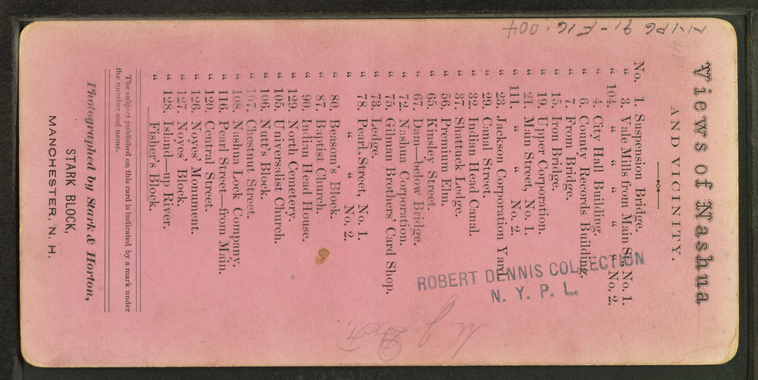 Views of Nashua
AND VICINITY.
No. 1. Suspension Bridge.
" 3. Vale Mills from Main St., No. 1.
" 104. " " " " " No. 2.
" 4. City Hall Building.
" 6. County Records Building.
" 7. From Bridge.
" 15. Iron Bridge.
" 19. Upper Corporation.
" 21. Main Street, No. 1.
" 111. " " No. 2.
" 23. Jackson Corporation Yard.
" 29. Canal Street.
" 32. Indian Head Canal.
" 37. Shattuck Ledge.
" 56. Premium Elm.
" 65. Kinsley Street.
" 67. Dam—below Bridge.
" 72. Nashua Corporation.
" 75. Gilman Brothers' Card Shop.
" 73. Ledge.
" 78. Pearl Street, No. 1.
" " " No. 2.
" 80. Beasom's Block.
" 87. Baptist Church.
" 90. Indian Head House.
" 129. North Cemetery.
" 105. Universalist Church.
" 106. Nutt's Block.
" 107. Chestnut Street.
" 108. Nashua Lock Company.
" 116. Pearl Street—from Main.
" 120. Central Street.
" 126. Noyes' Monument.
" 127. Noyes' Block.
" 128. Island—up River.
" Fisher's Block.
The subject published on this card is indicated by a mark under
the number and name.
Photographed by Stark & Horton,
STARK BLOCK,
MANCHESTER, N. H.
ROBERT DENNIS COLLECTION
N. Y. P. L.
NYPG 91-F16.004